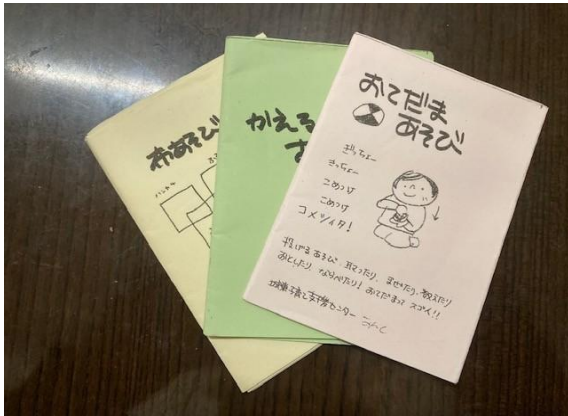 布あそび
ハンカチ
かえる
おてだま
あそび
ぎっちょー
ぎっちょー
こめつけ
こめつけ
コメツイタ!
投げるあそび、耳マったり、ませたり、数えたり
おとしたり、ならべたり! おてだまって スゴイ!!
子育て支援センター